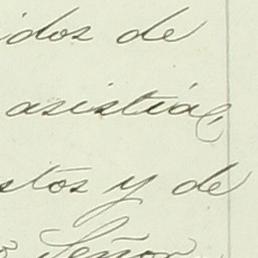 idos de
asistia
stos y de
Señor